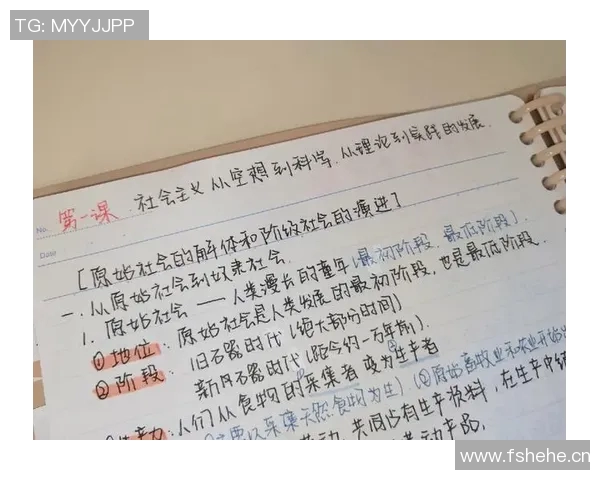 TG: MYYJJPP
第一课 社会主义从空想到科学、从理论到实践的发展
No.
Date
[原始社会的解体和阶级社会的演进]
一、从原始社会到奴隶社会
1. 原始社会——人类漫长的童年(最初阶段、最低阶段)
①地位：原始社会是人类发展的最初阶段，也是最低阶段.
②阶段：旧石器时代(绝大部分时间)
新石器时代(距今约一万年前).
人们从食物的采集者变为生产者
生产力：(主要以采集天然食物为生)(②原始畜牧业和农业开始
共同占有生产资料，在生产中
劳动产品，
www.fshehe.cn